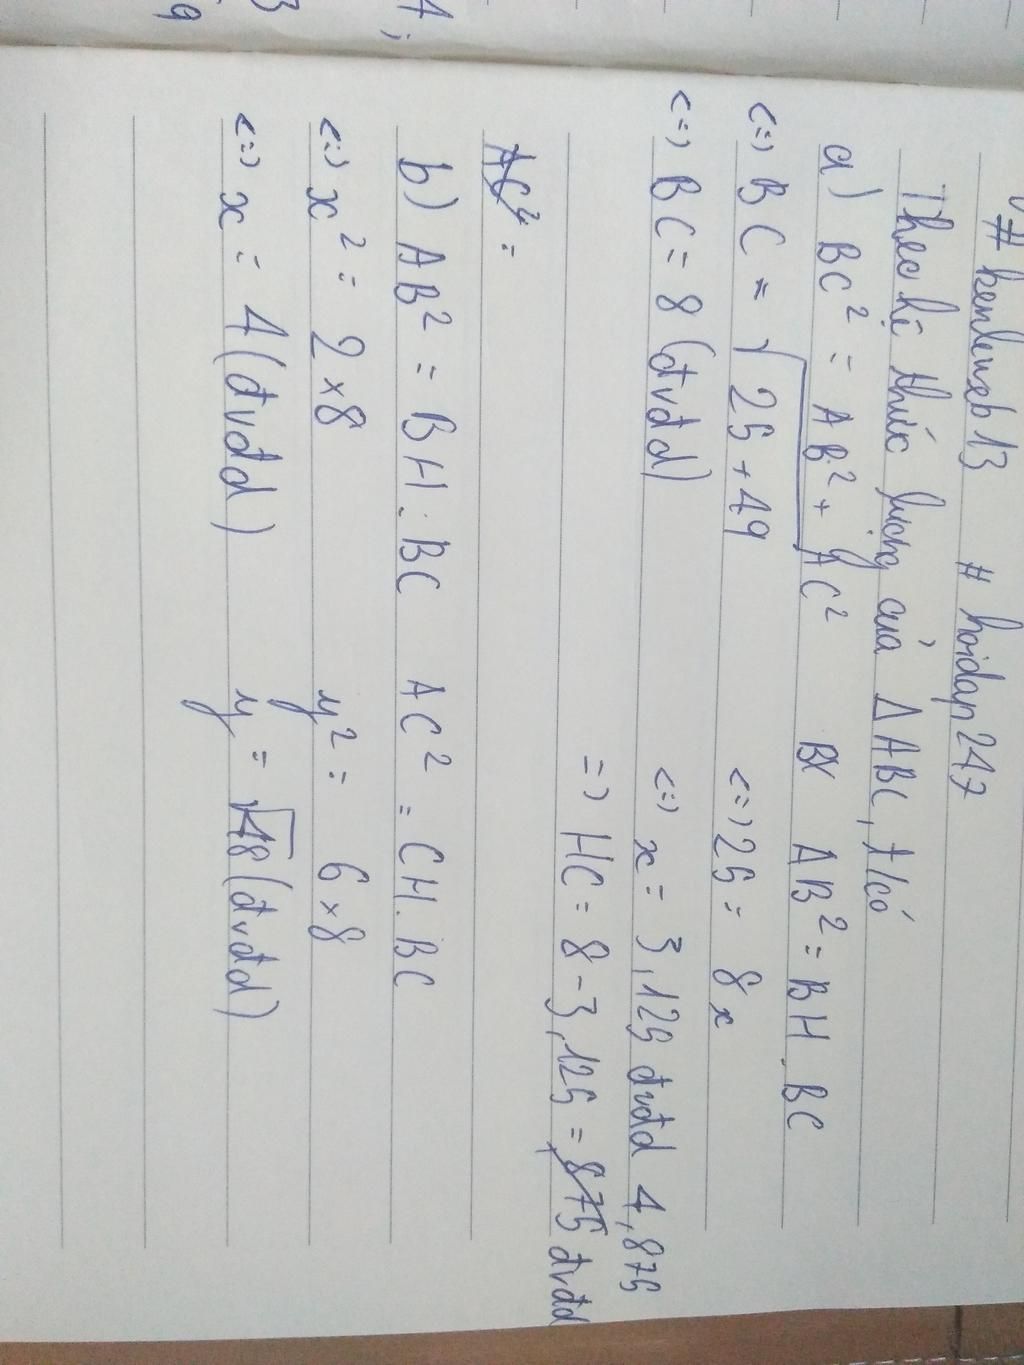 # kenleweb13 # hoidap247
Theo hệ thức lượng của ΔABC, t/có
a) BC² = AB² + AC² AB² = BH.BC
<=> BC = √25+49 <=> 25 = 8x
<=> BC = 8 (đvđd) <=> x = 3,125 đvđd 4,875
=> HC = 8 - 3,125 = 875 đvđd
AC² =
b) AB² = BH.BC AC² = CH.BC
<=> x² = 2 x 8 y² = 6 x 8
<=> x = 4 (đvđd) y = √48 (đvđd)